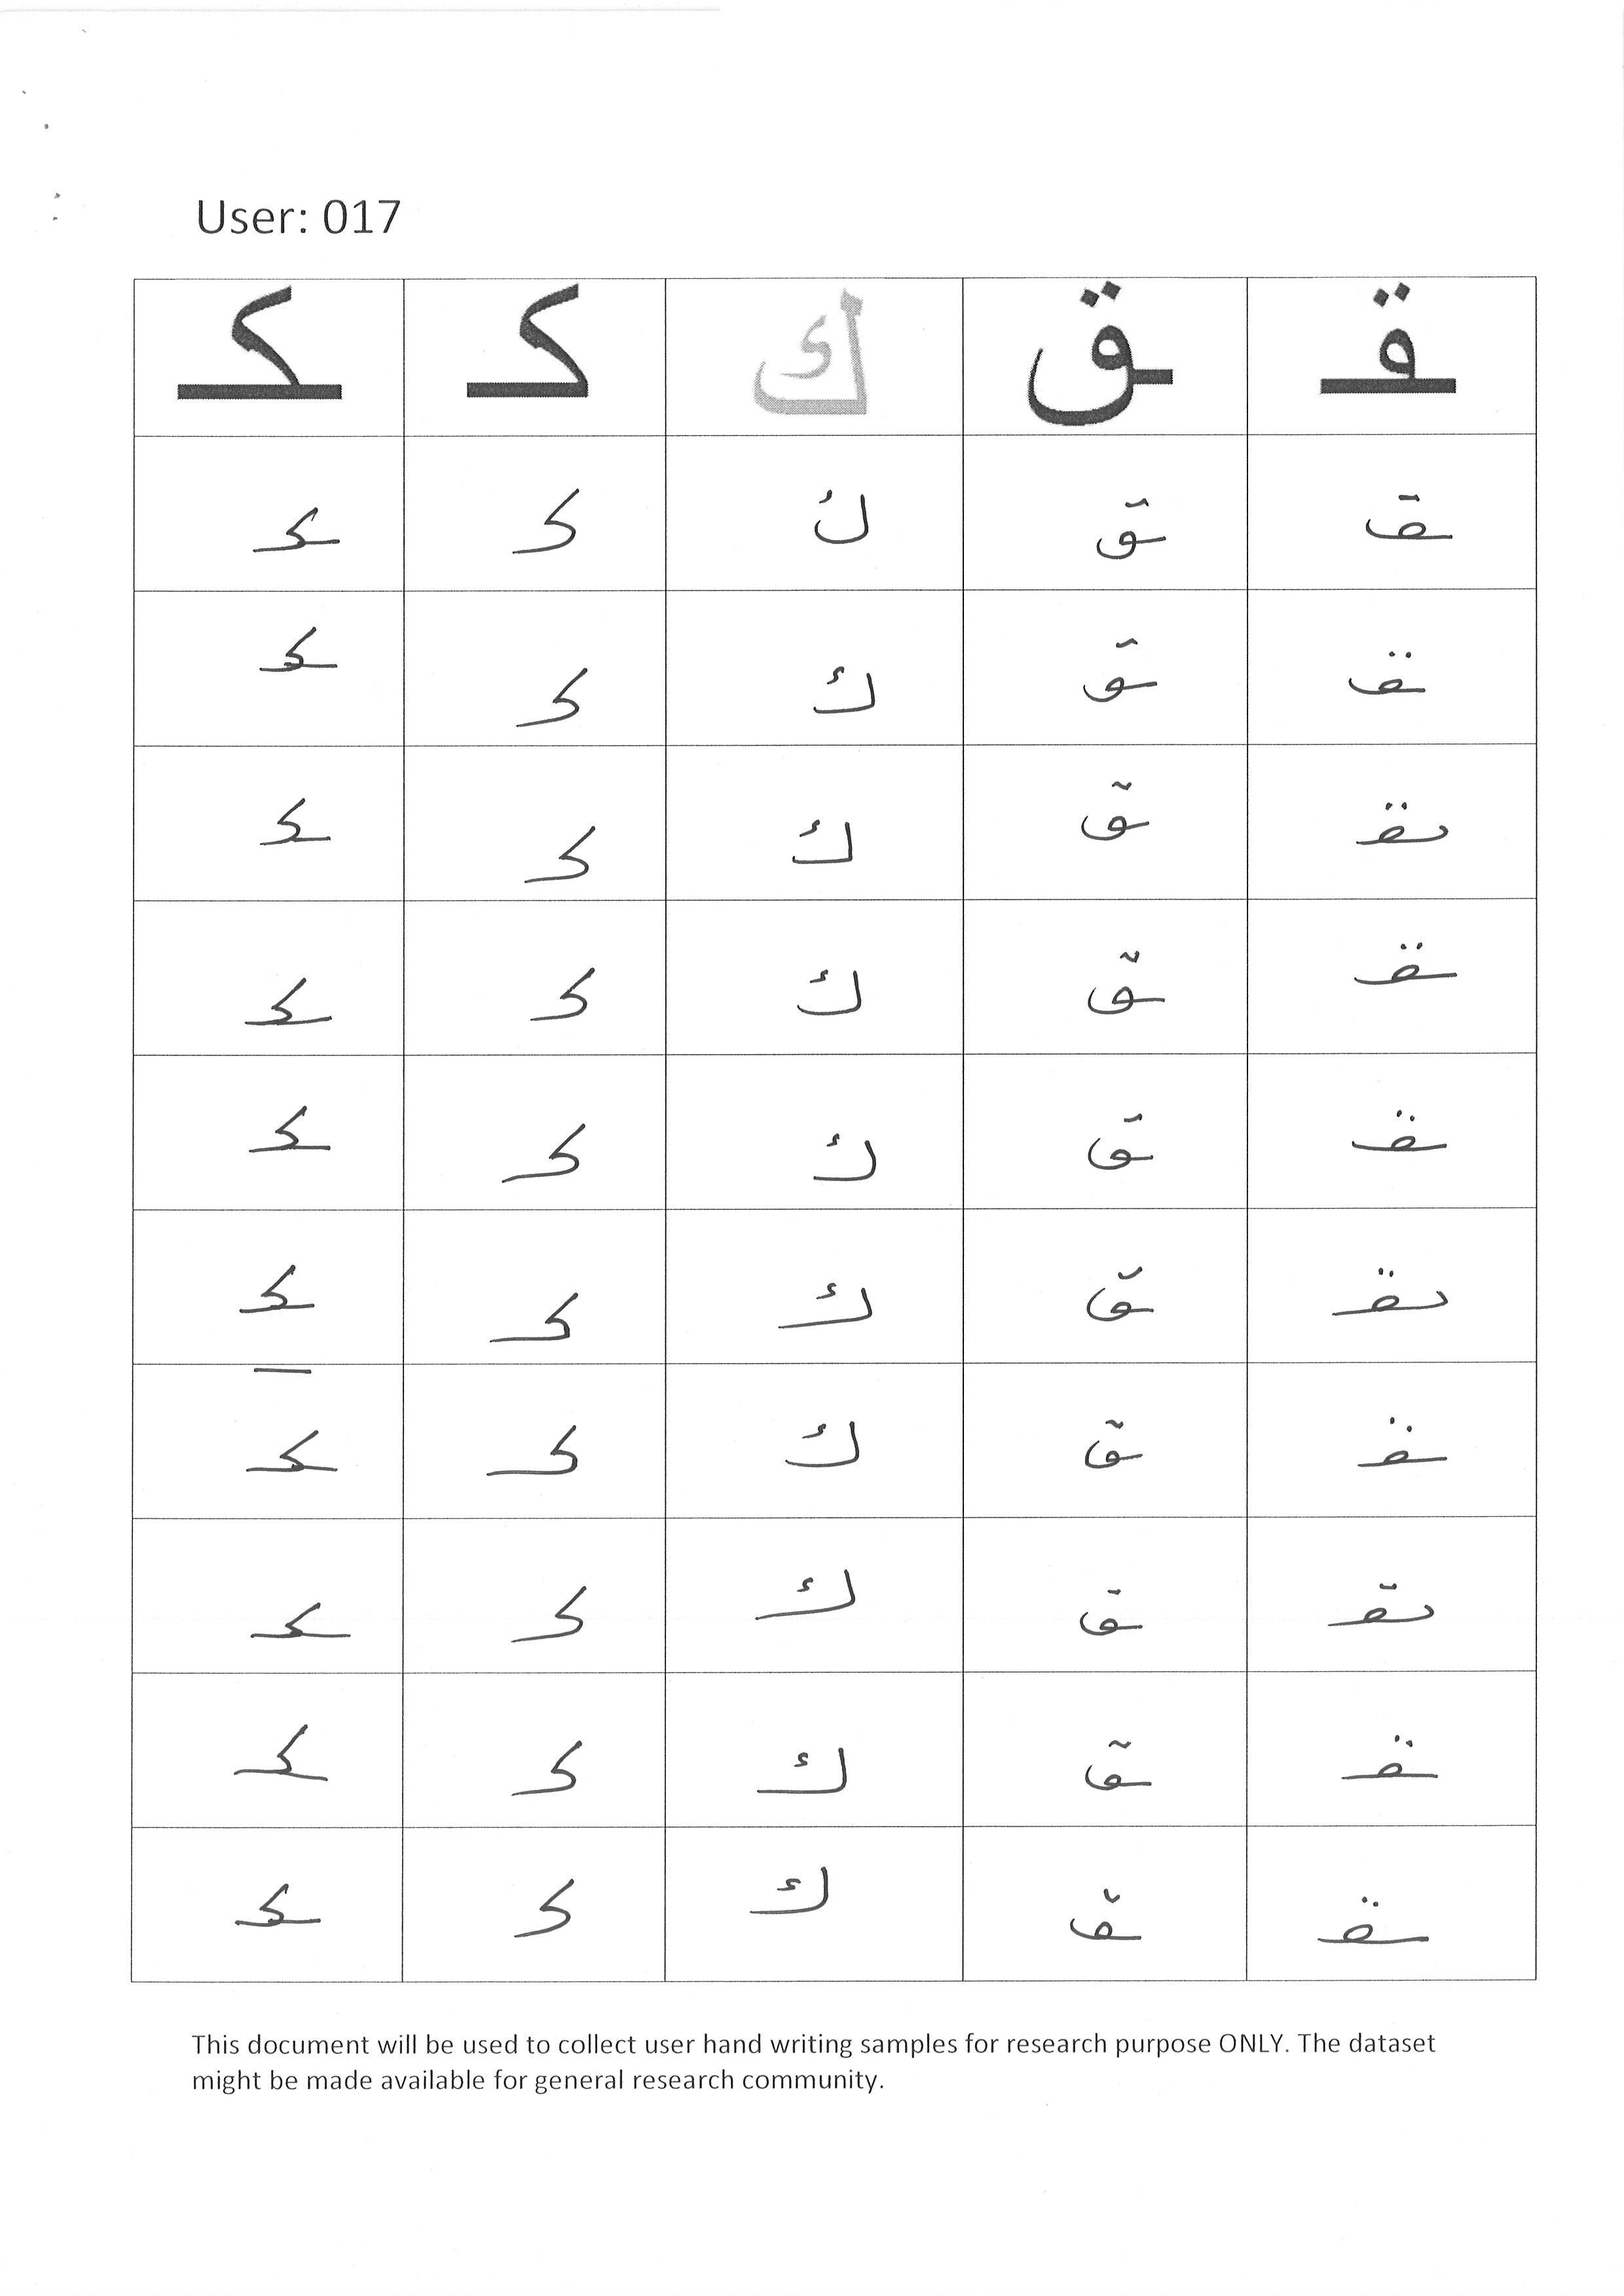 User: 017
ـقـ ـق ك كـ ـكـ
ـقـ ـق ك كـ ـكـ
ـقـ ـق ك كـ ـكـ
ـقـ ـق ك كـ ـكـ
ـقـ ـق ك كـ ـكـ
ـقـ ـق ك كـ ـكـ
ـقـ ـق ك كـ ـكـ
ـقـ ـق ك كـ ـكـ
ـقـ ـق ك كـ ـكـ
ـقـ ـق ك كـ ـكـ
ـقـ ـق ك كـ ـكـ
This document will be used to collect user hand writing samples for research purpose ONLY. The dataset
might be made available for general research community.